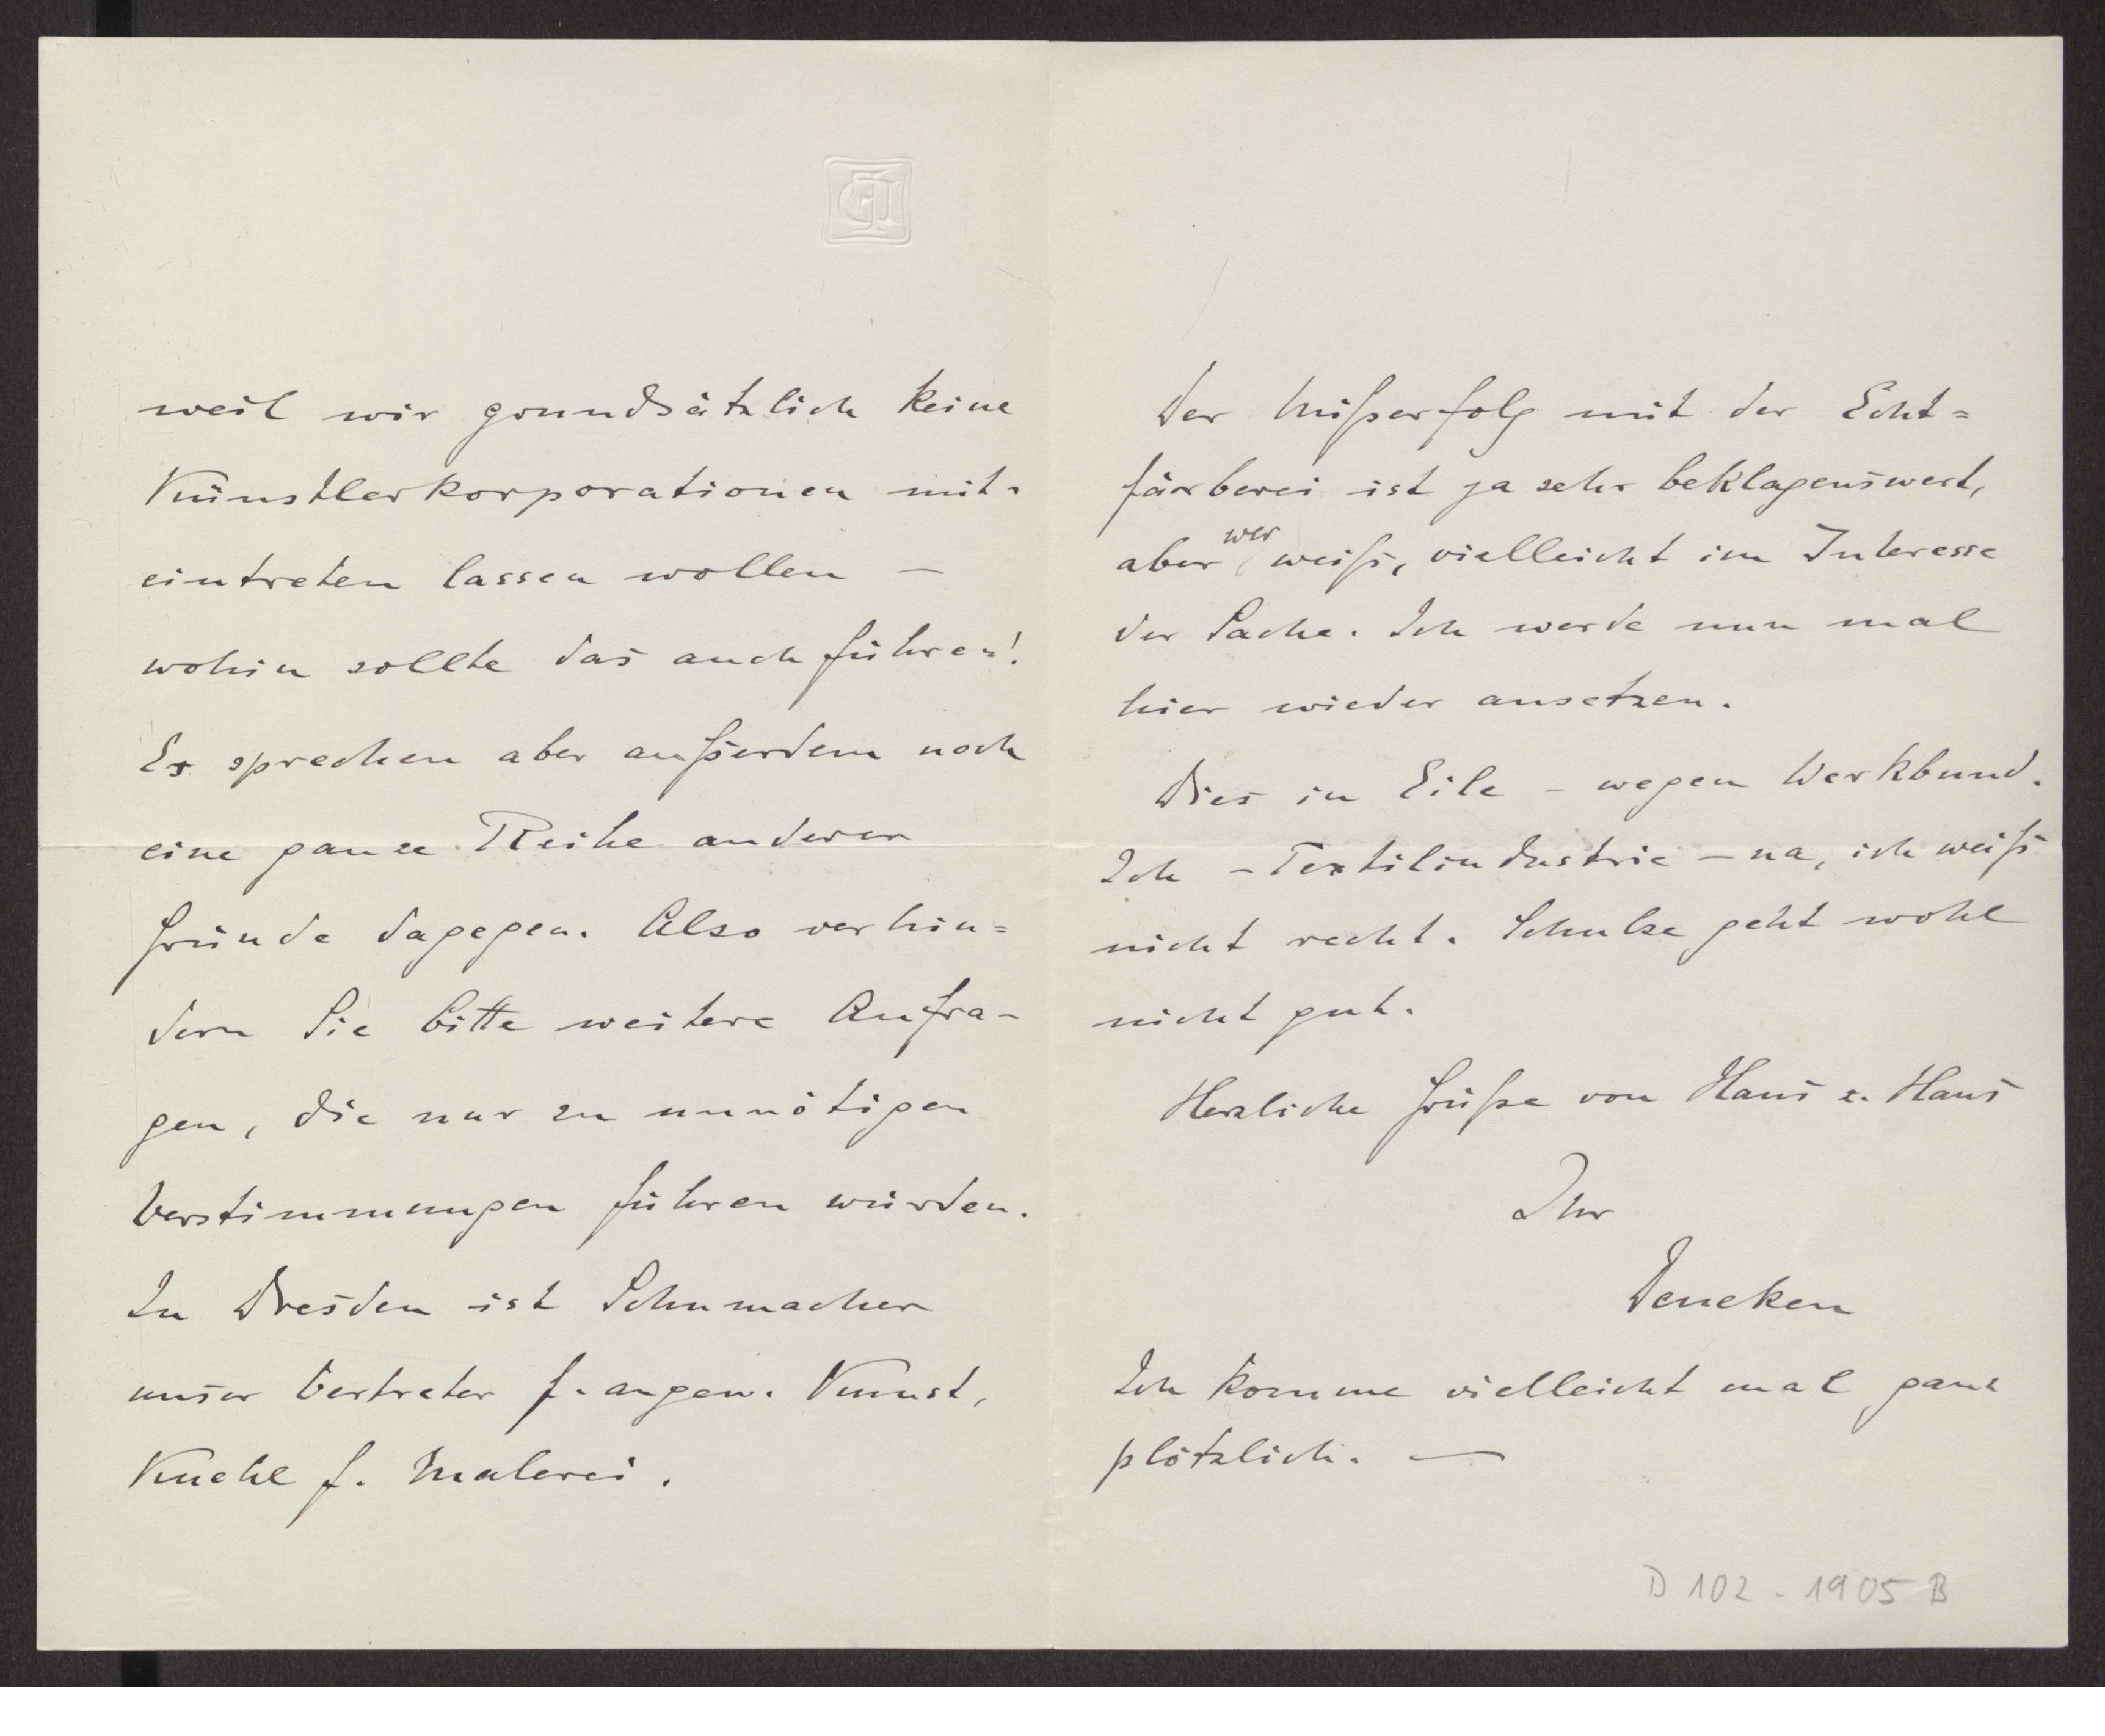 weil wir grundsätzlich keine
Künstlerkorporationen mit-
eintreten lassen wollen –
wohin sollte das auch führen!
Es sprechen aber außerdem noch
eine ganze Reihe anderer
Gründe dagegen. Also verhin=
dern Sie bitte weitere Anfra-
gen, die nur zu unnötigen
Verstimmungen führen würden.
In Dresden ist Schumacher
unser Vertreter f. angew. Kunst,
Kuehl f. Malerei.
Der Mißerfolg mit der Echt=
färberei ist ja sehr beklagenswert,
aber wer weiß, vielleicht im Interesse
der Sache. Ich werde nun mal
hier wieder ansetzen.
Dies in Eile – wegen Werkbund.
Ich – Textilindustrie – na, ich weiß
nicht recht. Schulze geht wohl
nicht gut.
Herzliche Grüße von Haus z. Haus
Ihr
Deneken
Ich komme vielleicht mal ganz
plötzlich. —
D 102 - 1905 B